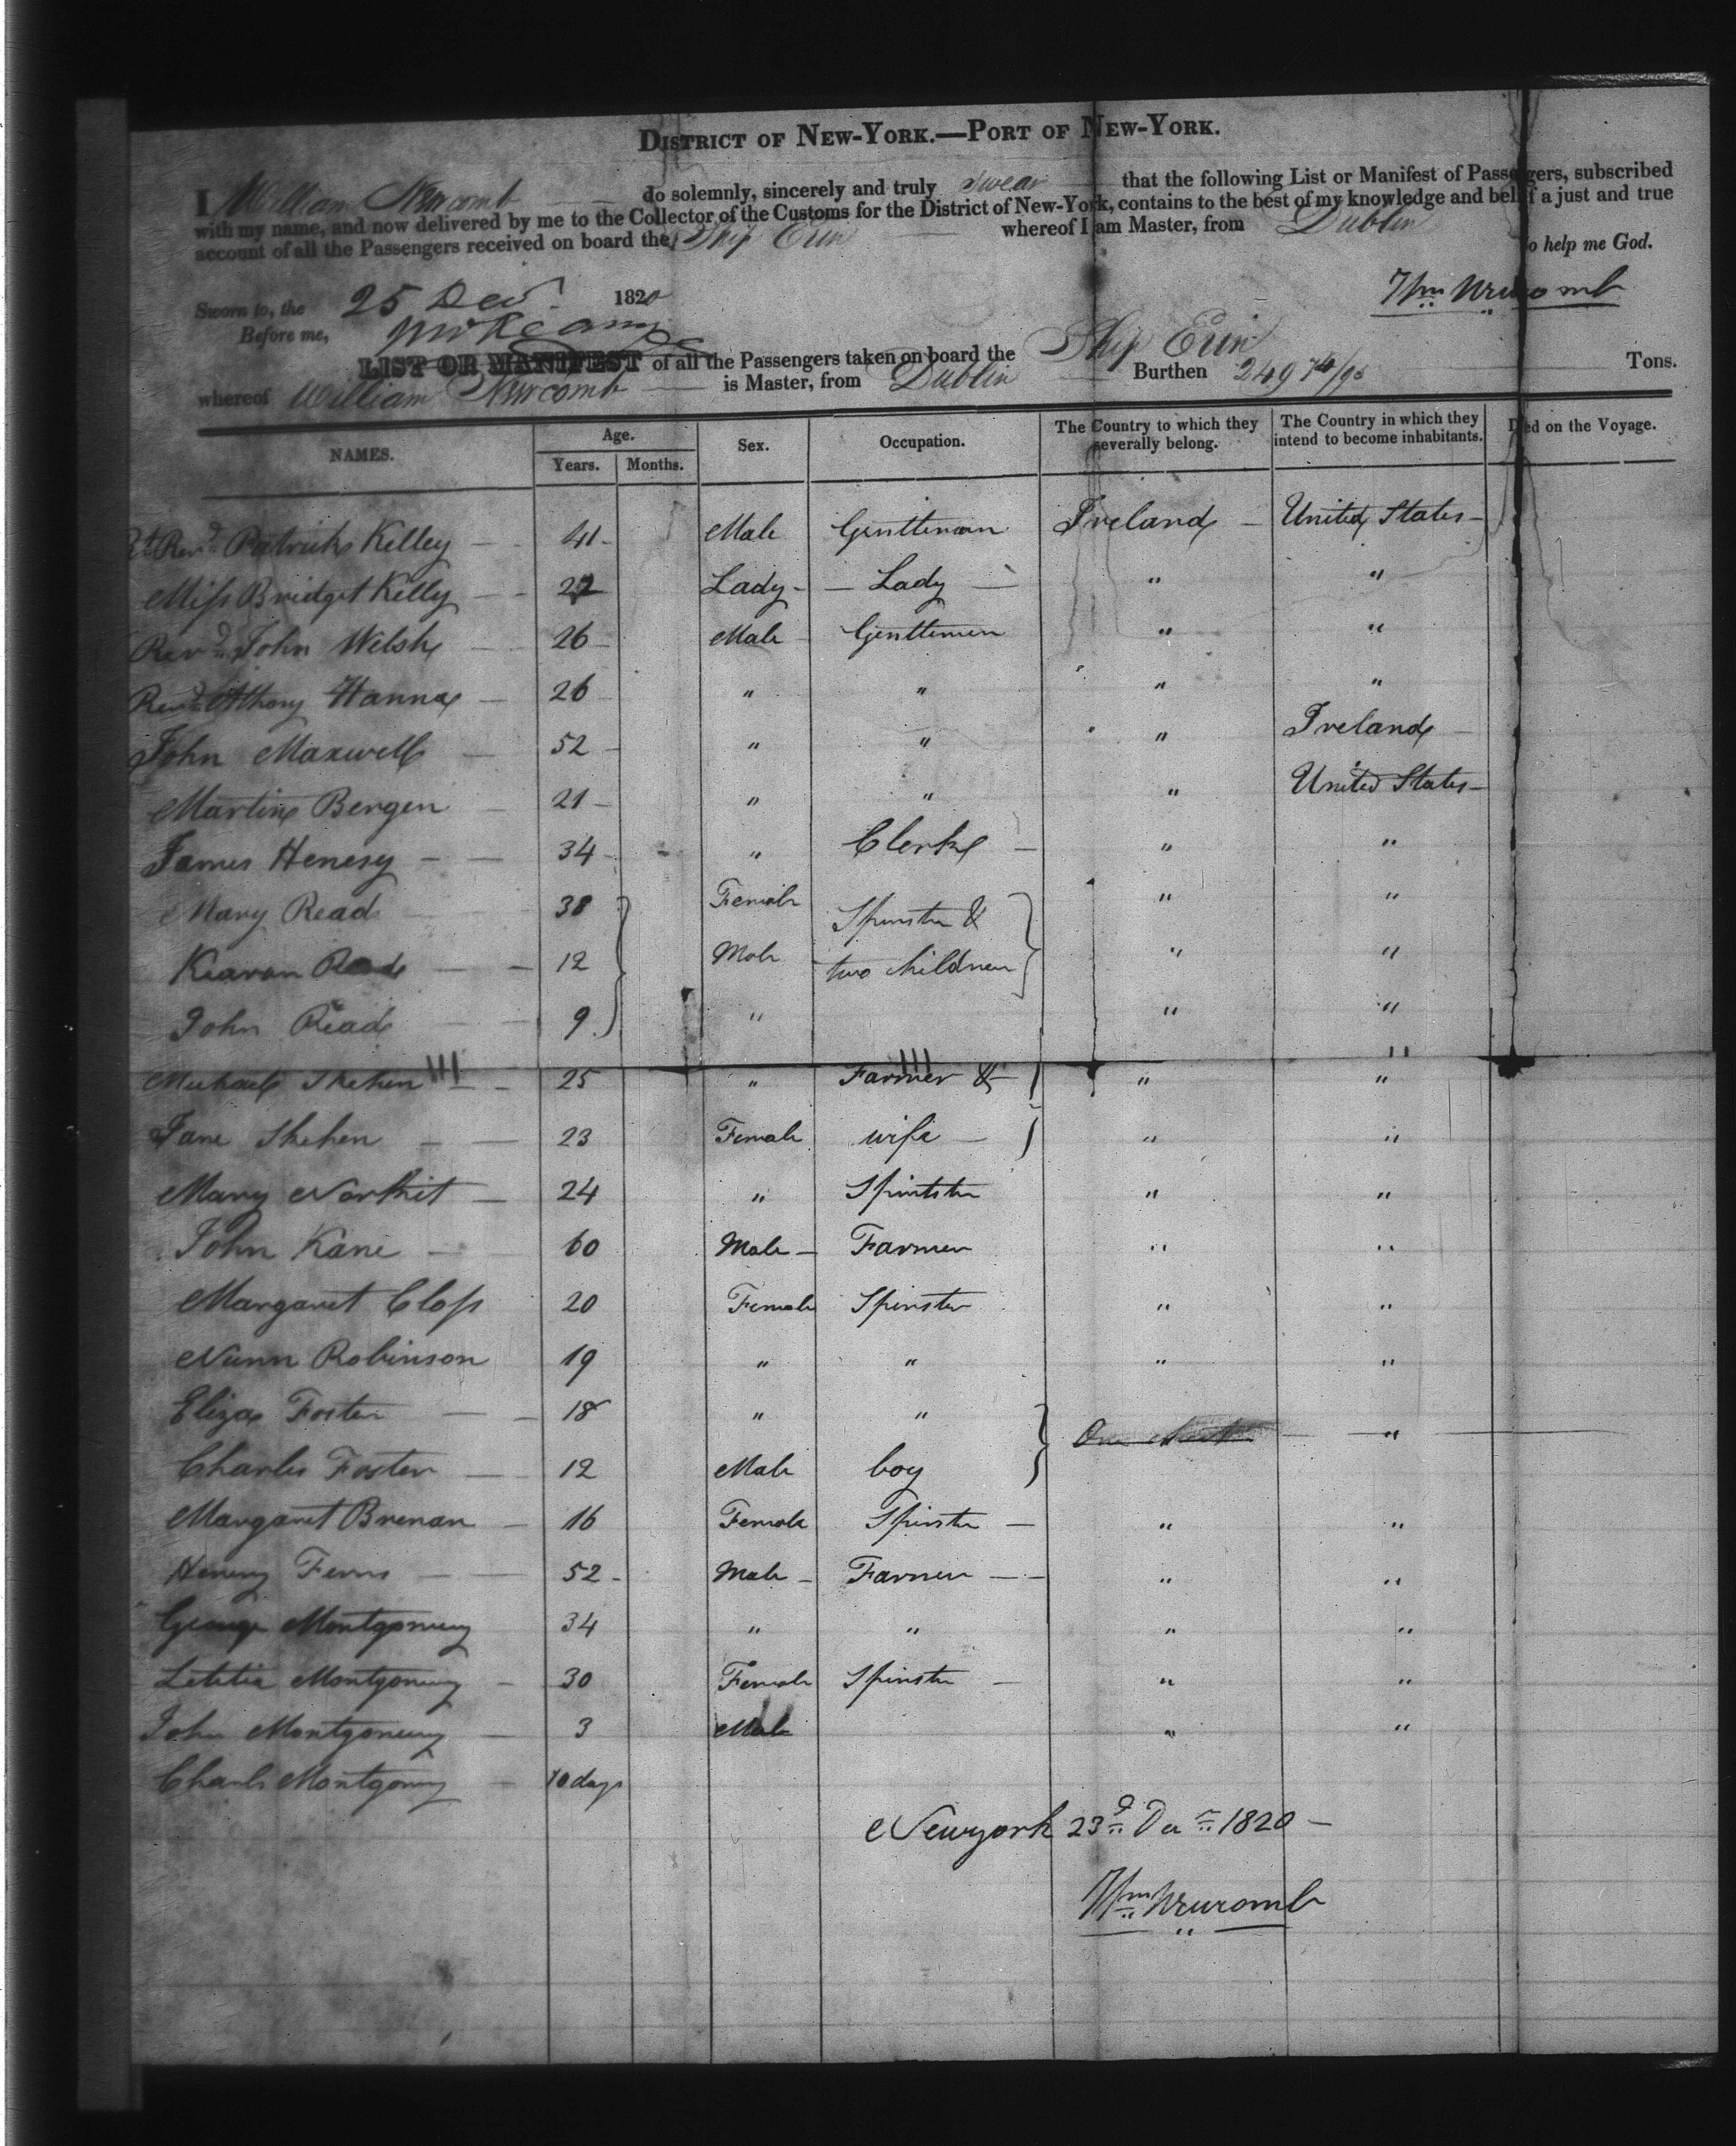 DISTRICT OF NEW-YORK.—PORT OF NEW-YORK.
I William Newcomb do solemnly, sincerely and truly swear that the following List or Manifest of Passengers, subscribed
with my name, and now delivered by me to the Collector of the Customs for the District of New-York, contains to the best of my knowledge and belief a just and true
account of all the Passengers received on board the Ship Erin whereof I am Master, from Dublin
So help me God.
Sworn to, the 25 Dec. 1820
Wm Newcomb
Before me,
LIST OR MANIFEST of all the Passengers taken on board the Ship Erin
whereof William Newcomb is Master, from Dublin Burthen 249 74/95 Tons.
NAMES. Age. Years. Months. Sex. Occupation. The Country to which they severally belong. The Country in which they intend to become inhabitants. Died on the Voyage.
Rt. Revd. Patrick Kelley 41 Male Gentleman Ireland United States
Miss Bridget Kelly 22 Lady Lady " "
Revd. John Welsh 26 Male Gentlemen " "
Revd. Hanna 26 " " " "
John Maxwell 52 " " " Ireland
Martin Bergen 21 " " " United States
James Henesy 34 " Clerk " "
Mary Read 38 Female Spinster & " "
Kiaran Read 12 Male two children " "
John Read 9 " " "
Michael Skehen 25 " Farmer & " "
Jane Skehen 23 Female wife " "
Mary Norkit 24 " Spintster " "
John Kane 60 Male Farmer " "
Margaret Closs 20 Female Spinster " "
Nann Robinson 19 " " " "
Eliza Foster 18 " "
One "
Charles Foster 12 Male boy
Margaret Brenan 16 Female Spinster " "
Henery Ferns 52 Male Farmer " "
George Montgomery 34 " " " "
Letitia Montgomery 30 Female Spinster " "
John Montgomery 3 Male " "
Charls Montgomery 10 days
Newyork 23d Decr 1820
Wm Newcomb